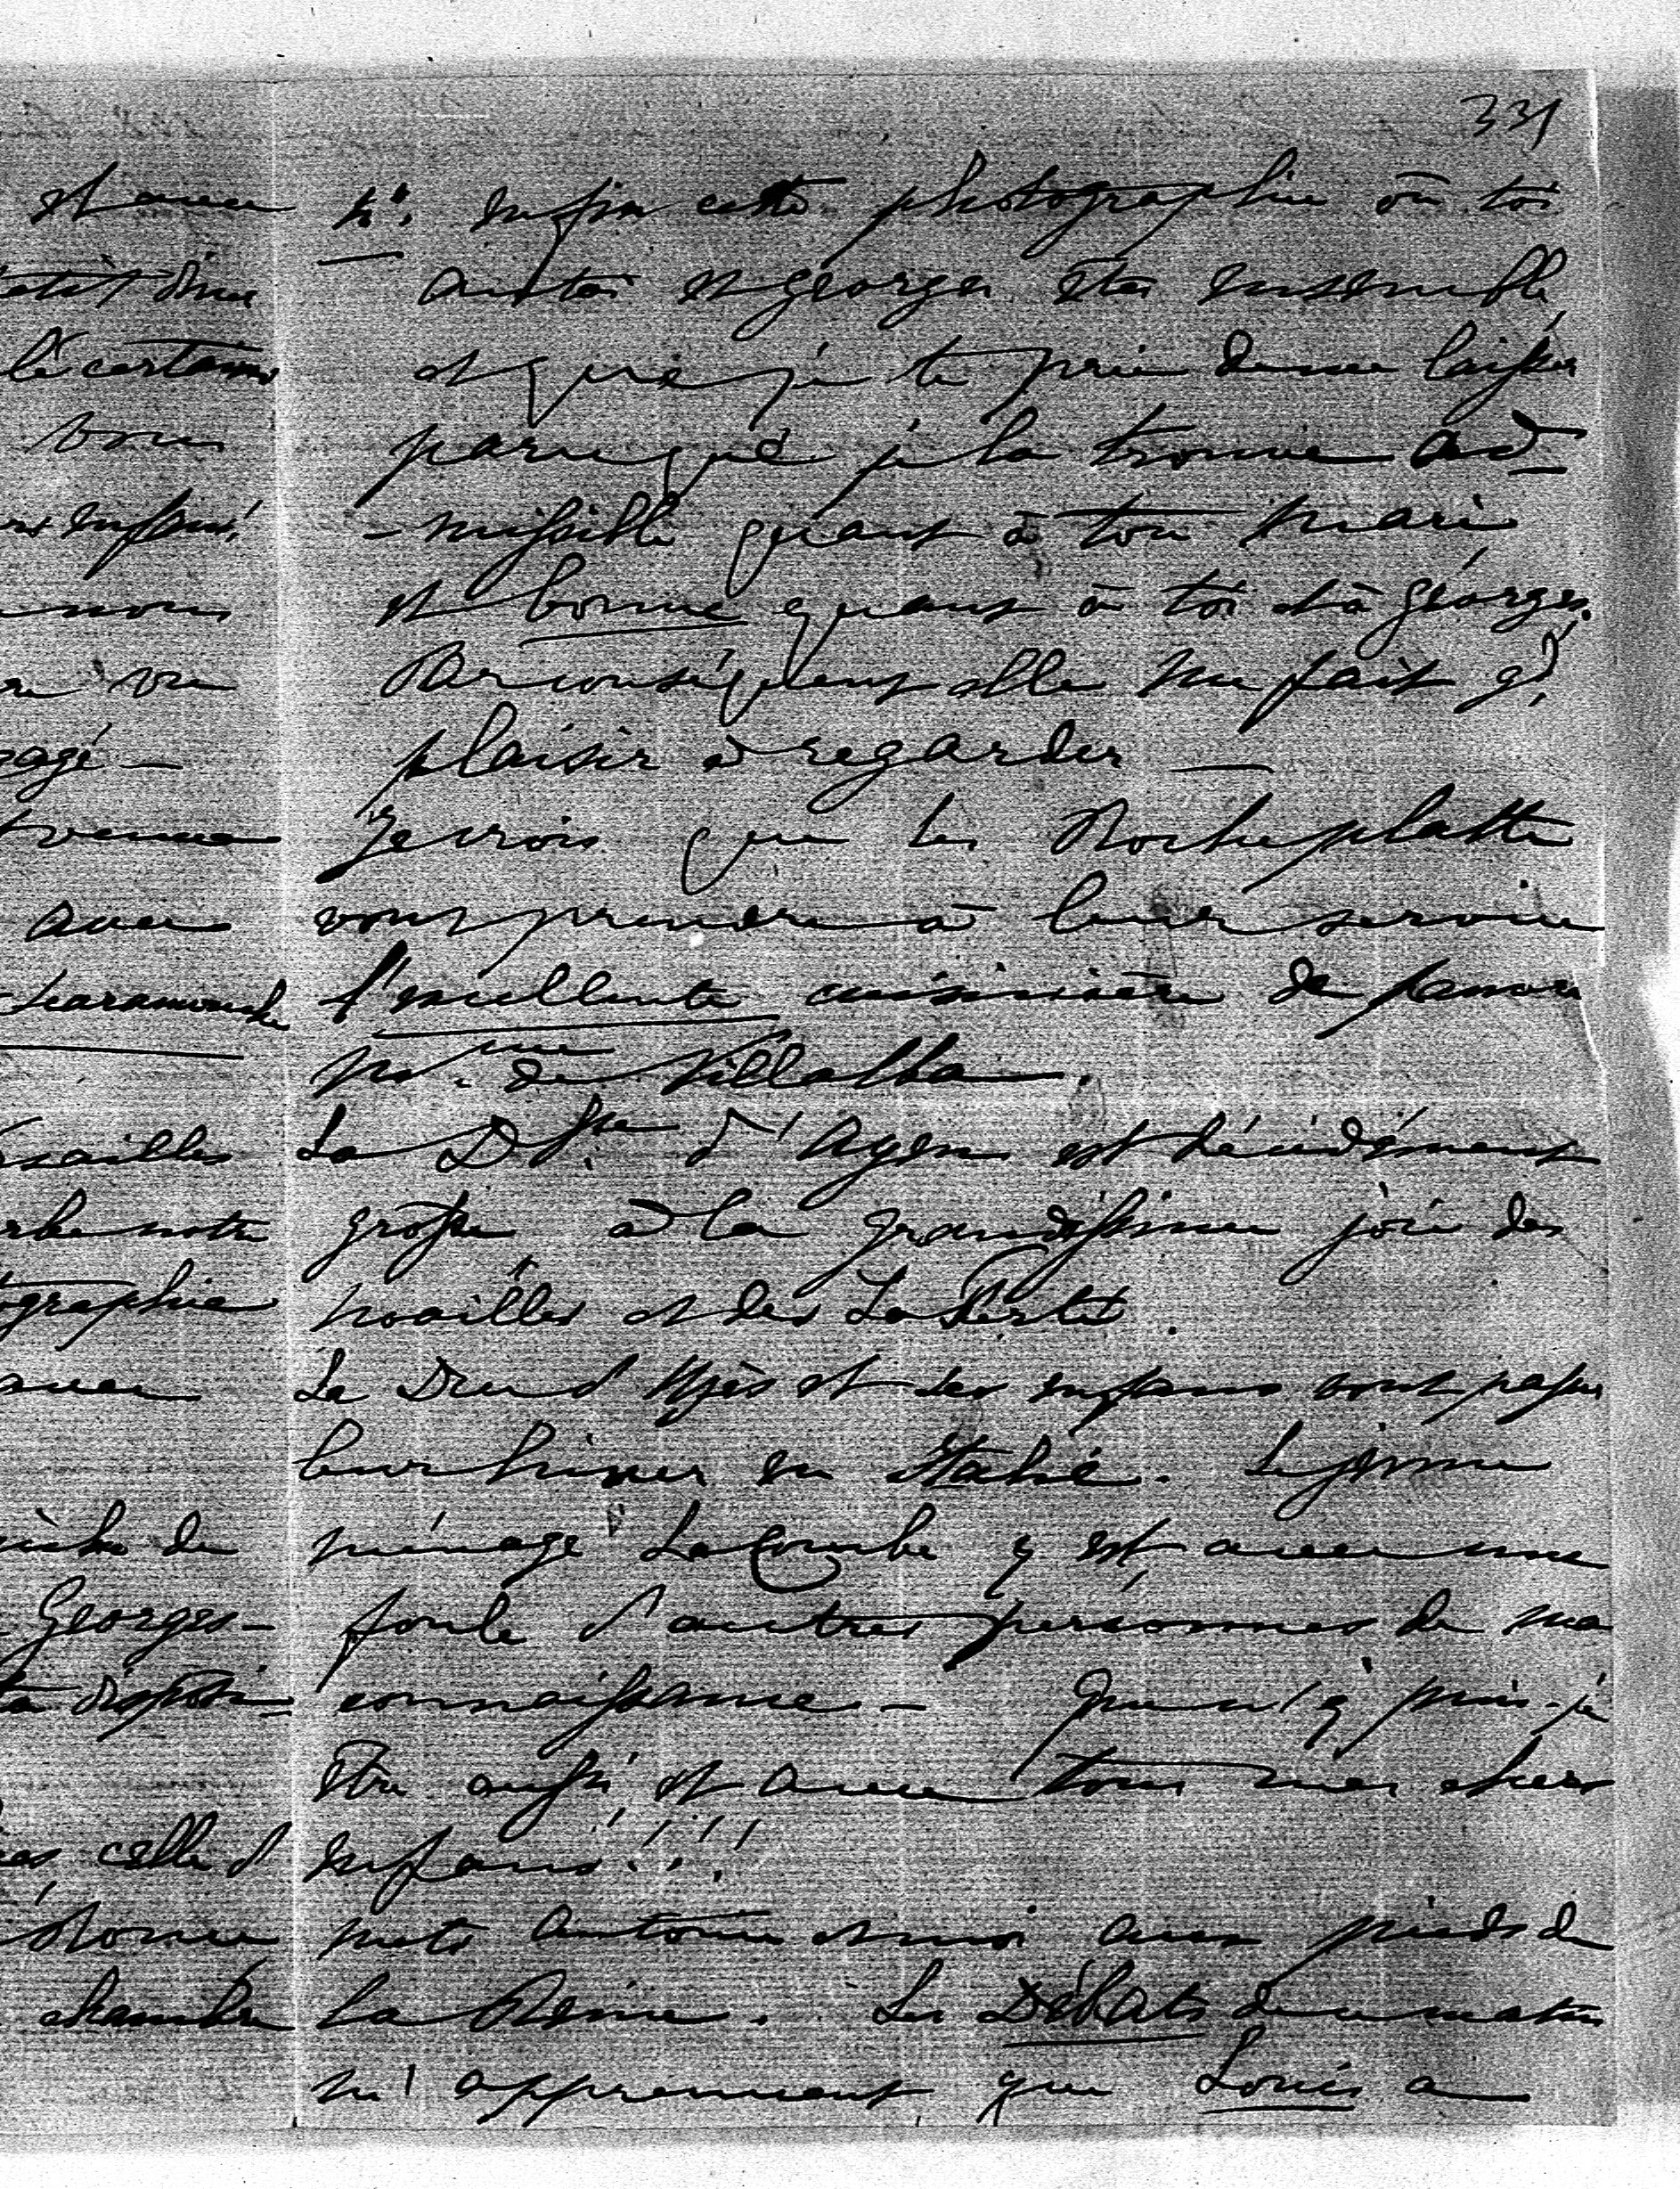 331
et avec
était dîner
certains
vous
enfans,
nous
vie
gagé —
venue
avec
Scaramouche
Versailles
notre
photographie
avec
de
Georges —
ta disposi-
celle d'
Rome
chambre
4°. enfin cette photographie où toi
Antoi et Georges êtes ensemble
et que je te prie de me laisser
parceque je la trouve ad-
-missible quant à ton mari
et bonne quant à toi et à Georges.
Par conséquent elle me fait gd
plaisir à regarder —
Je crois que les Rocheplatte
vont prendre à leur service
l'excellente cuisinière de
Mme de Villalba.
La Dsse d'Ayen est décidément
grosse à la grandissime joie des
Noailles et des La Ferté.
Le Duc d'Uzès et ses enfans vont passer
leur hiver en Italie. Le jeune
ménage LaCombe y est avec une
foule d'autres personnes de ma
connaissance — Que n'y puis-je
être aussi, et avec tous mes chers
enfans!!!!
mets Antoine et moi aux pieds de
la Reine. Les Débats de ce matin
m'apprennent que Louis a